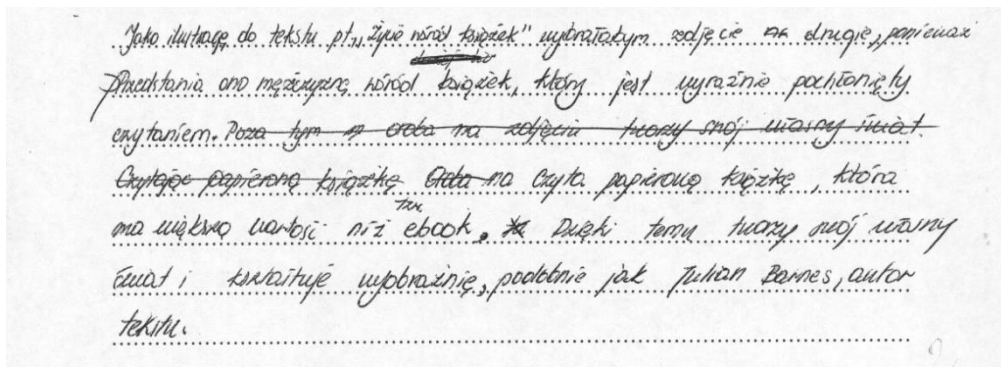 Jako ilustrację do tekstu pt. „Życie wśród książek" wybrałabym zdjęcie drugie, ponieważ
Przedstawia ono mężczyznę wśród książek, który jest wyraźnie pochłonięty
czytaniem. Poza tym osoba na zdjęciu tworzy swój własny świat.
Czytając papierową książkę Osoba na Czyta papierową książkę, która
ma większą wartość niż ebook. Dzięki temu tworzy swój własny
świat i kształtuje wyobraźnię, podobnie jak Julian Barnes, autor
tekstu.